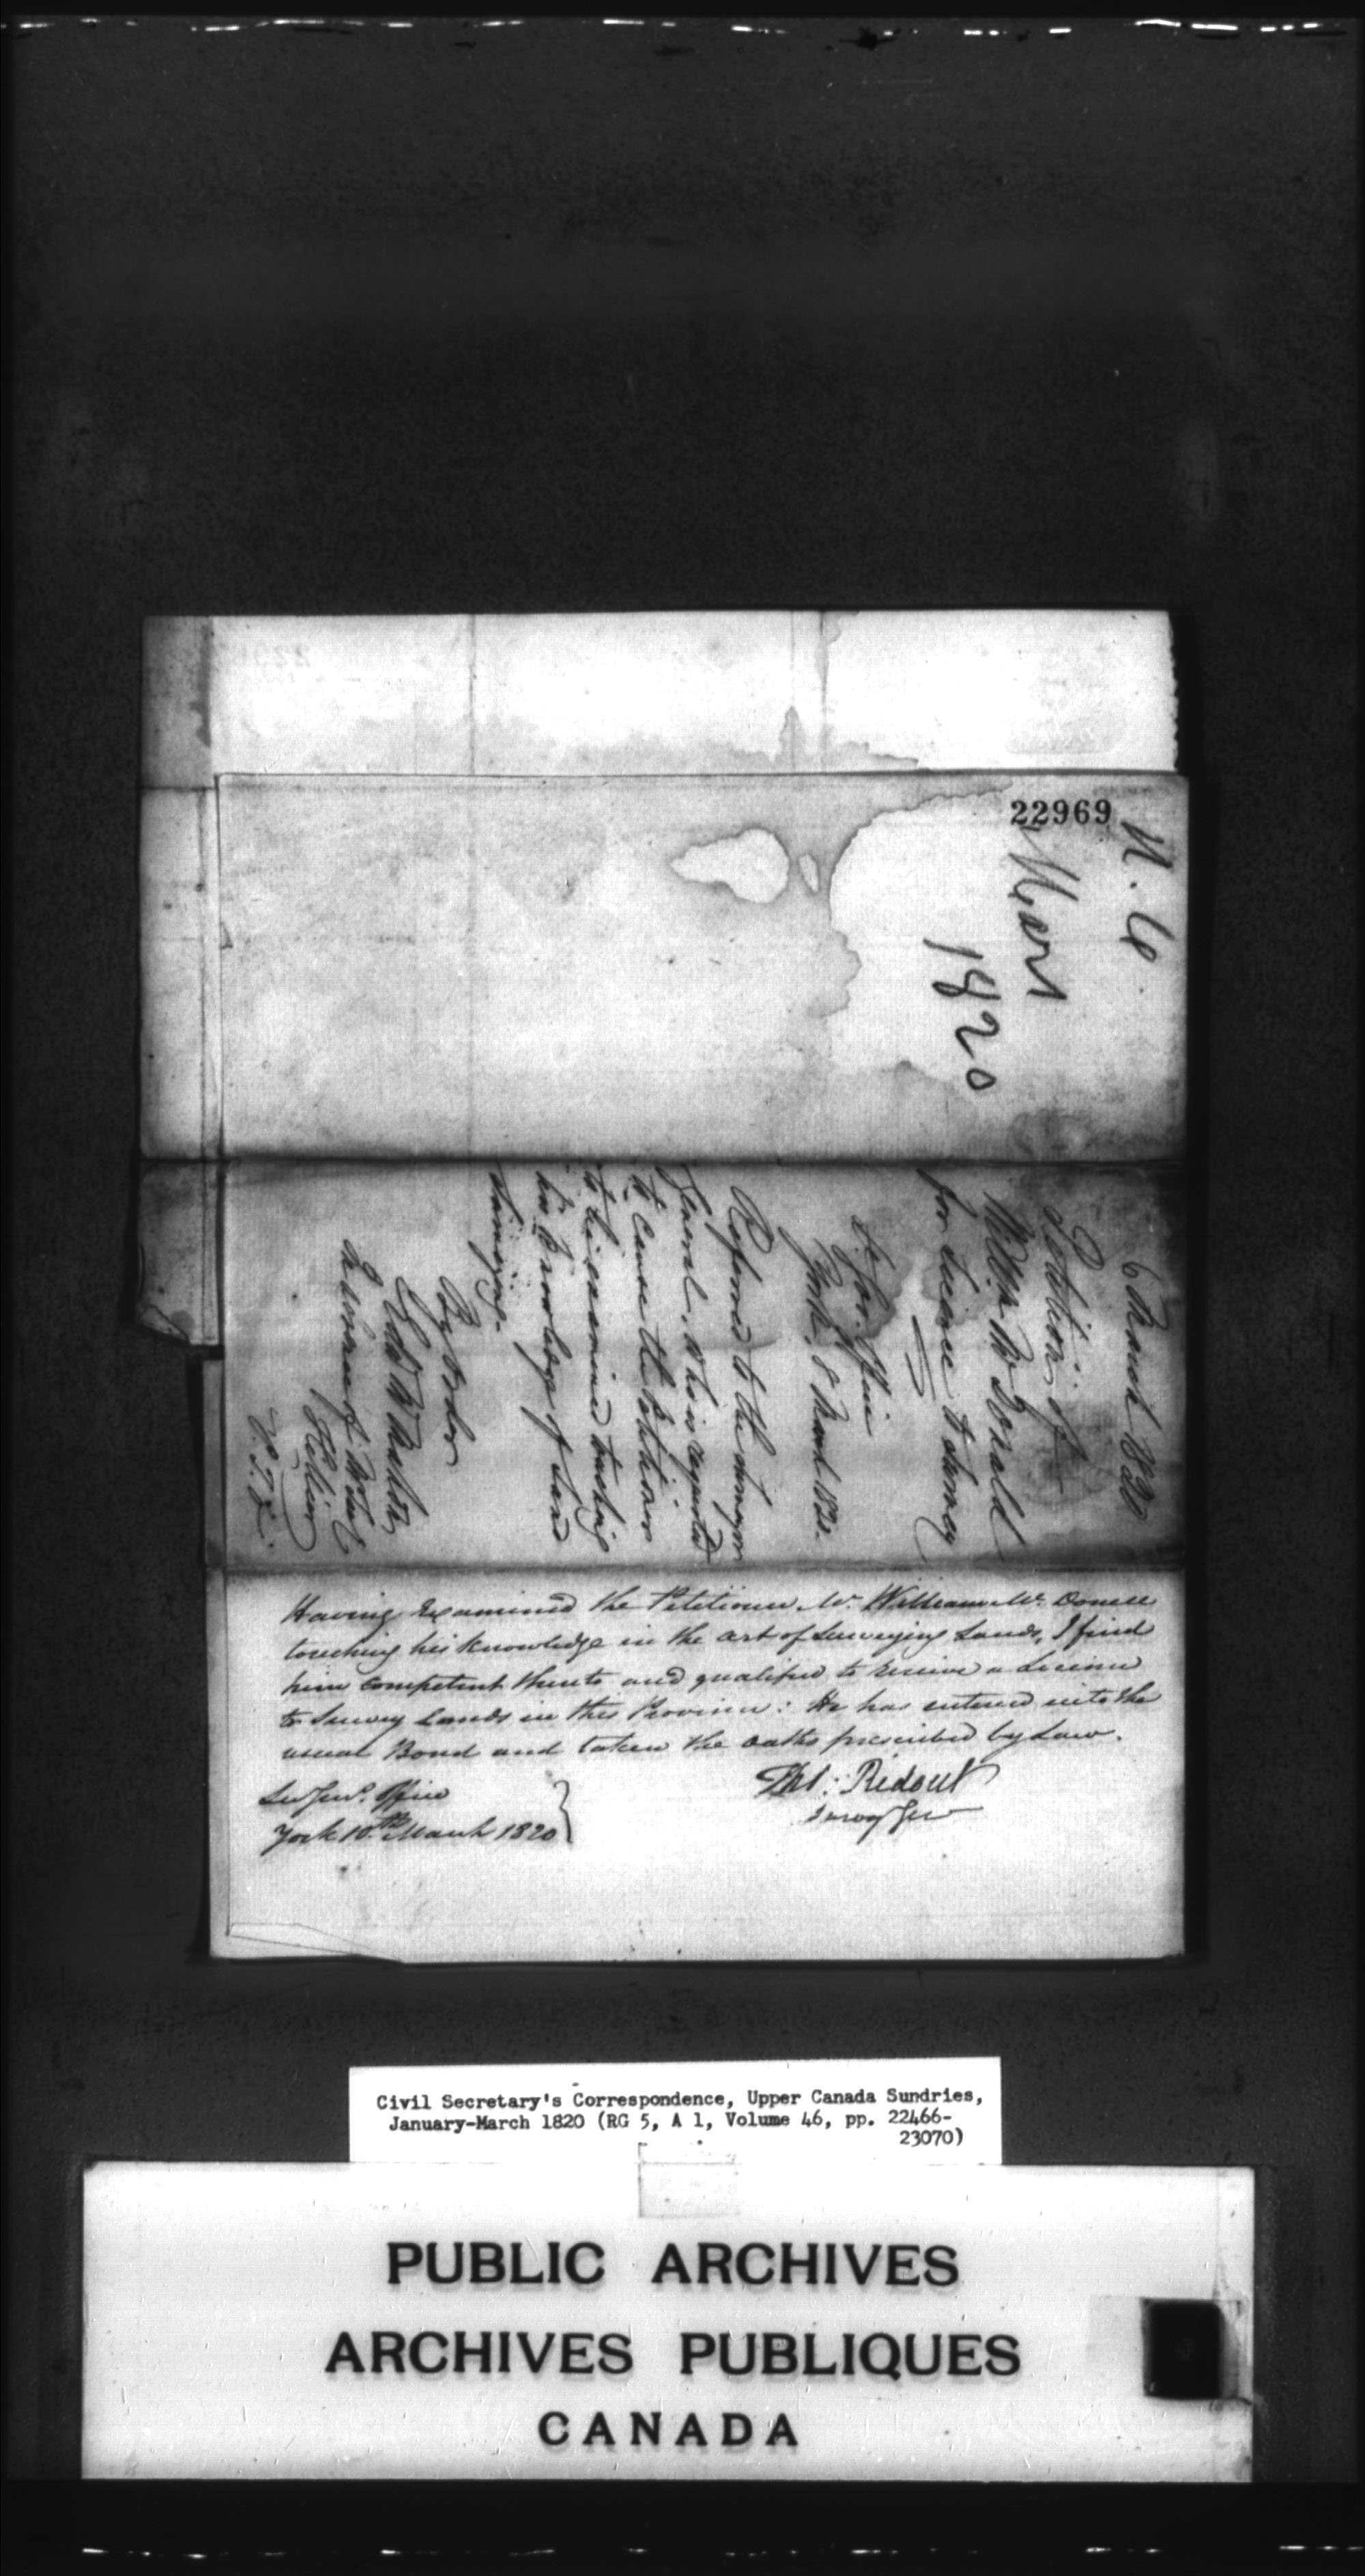 22969
U. C.
Mars
1820
6 March 1820
Petition of
Willm McDonald
for License to Survey
Lt. Gov. Office
York, 8 March 1820.
Referred to the Surveyor
General, who is requested
to cause the Petitioner
to be examined touching
his Knowledge of Land
Surveying.
By Order
Having Examined the Petitioner Mr. William Mc. Donell
touching his knowledge in the art of Surveying Lands, I find
him Competent thereto and qualified to receive a License
to Survey Lands in this Province: He has entered into the
usual Bond and taken the oaths prescribed by Law.
Sur Genl. Office
York 10th March 1820
Thos: Ridout
Survr Genl
Civil Secretary's Correspondence, Upper Canada Sundries,
January-March 1820 (RG 5, A 1, Volume 46, pp. 22466-
23070)
PUBLIC ARCHIVES
ARCHIVES PUBLIQUES
CANADA